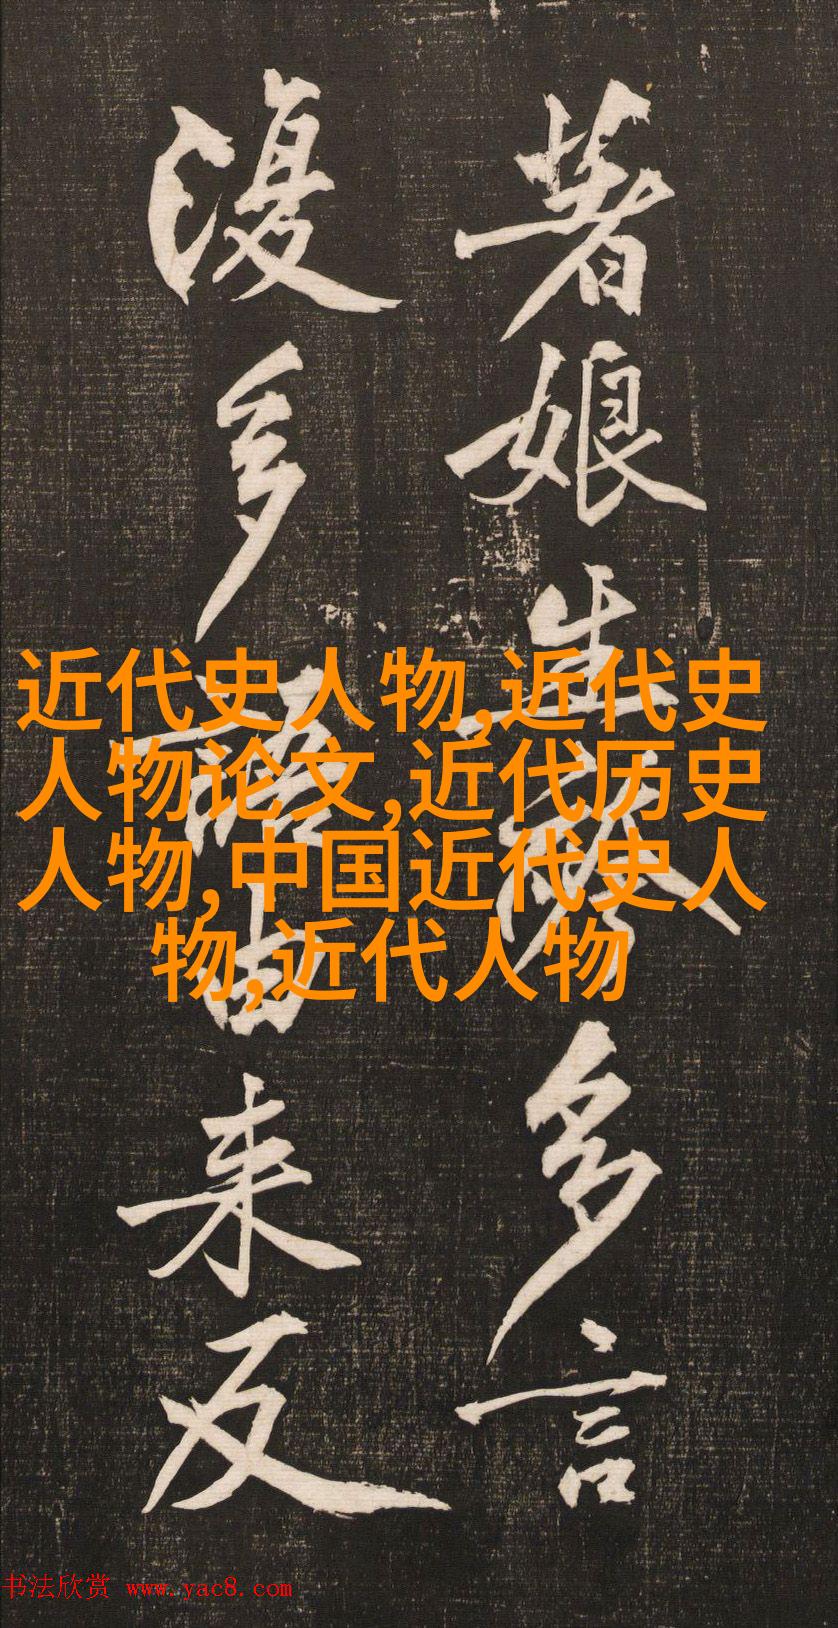 著娘生多言
復多語由来反
近代史人物,近代史
人物论文,近代历史
人物,中国近代史人
物,近代人物
书法欣赏 www.yac8.com